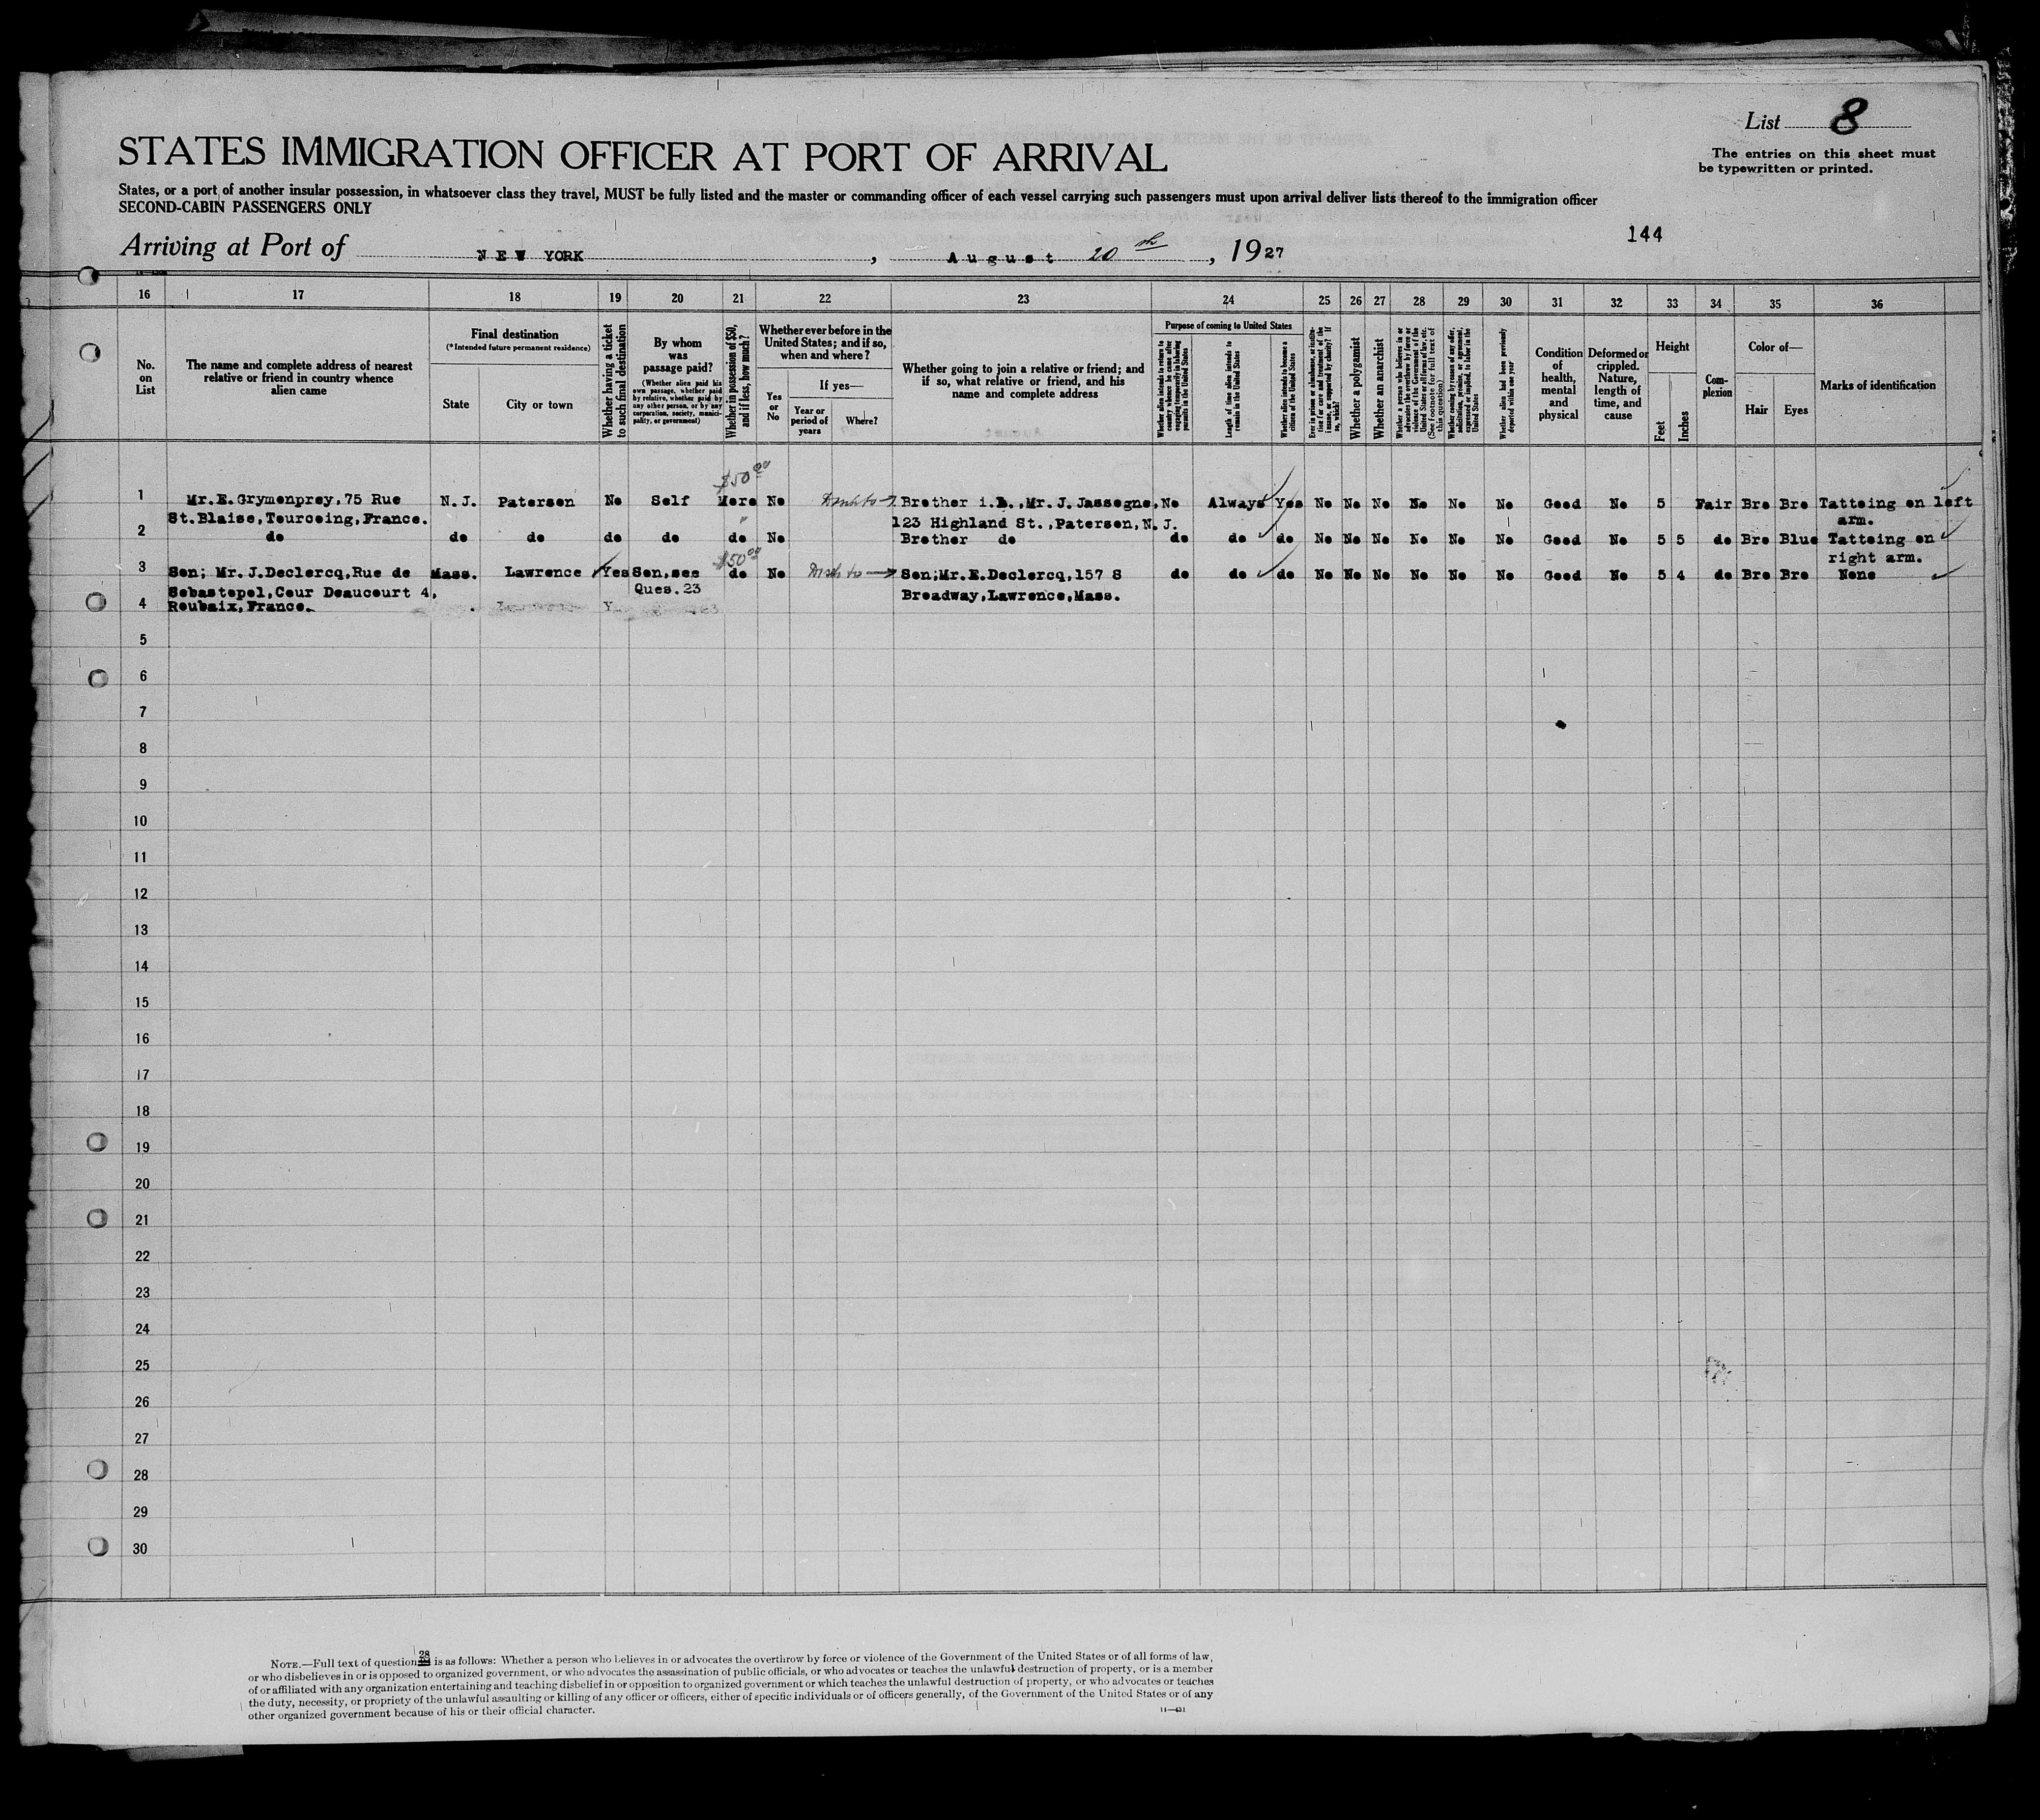 List 8
The entries on this sheet must
be typewritten or printed.
STATES IMMIGRATION OFFICER AT PORT OF ARRIVAL
States, or a port of another insular possession, in whatsoever class they travel, MUST be fully listed and the master or commanding officer of each vessel carrying such passengers must upon arrival deliver lists thereof to the immigration officer
SECOND-CABIN PASSENGERS ONLY
144
Arriving at Port of NEW YORK, August 20th, 1927
16 17 18 19 20 21 22 23 24 25 26 27 28 29 30 31 32 33 34 35 36
No. on List
The name and complete address of nearest relative or friend in country whence alien came
Final destination
(*Intended future permanent residence)
State
City or town
Whether having a ticket to such final destination
By whom was passage paid?
(Whether alien paid his own passage, whether paid by relative, whether paid by any other person, or by any corporation, society, municipality, or government)
Whether in possession of $50, and if less, how much?
Whether ever before in the United States; and if so, when and where?
Yes or No
If yes—
Year or period of years
Where?
Whether going to join a relative or friend; and if so, what relative or friend, and his name and complete address
Purpose of coming to United States
Whether alien intends to return to country whence he came after engaging temporarily in laboring pursuits in the United States
Length of time alien intends to remain in the United States
Whether alien intends to become a citizen of the United States
Ever in prison or almshouse, or institution for care and treatment of the insane, or supported by charity? If so, which?
Whether a polygamist
Whether an anarchist
Whether a person who believes in or advocates the overthrow by force or violence of the Government of the United States or all forms of law, etc. (See footnote for full text of this question)
Whether coming by reason of any offer, solicitation, promise, or agreement, expressed or implied, to labor in the United States
Whether alien had been previously deported within one year
Condition of health, mental and physical
Deformed or crippled. Nature, length of time, and cause
Height
Feet
Inches
Complexion
Color of—
Hair
Eyes
Marks of identification
$50.00
1 Mr.E.Grymonprey,75 Rue N.J. Paterson No Self More No Brother i.L.,Mr.J.Jassogne, No Always Yes No No No No No No Good No 5 Fair Bro Bro Tattoing on left
St.Blaise,Tourcoing,France. 123 Highland St.,Paterson,N.J. arm.
2 do do do do do do No Brother do do do do No No No No No No Good No 5 5 do Bro Blue Tattoing on
$50.00 right arm.
3 Son; Mr.J.Declercq,Rue de Mass. Lawrence Yes Son,see do No Son;Mr.E.Declercq,157 S do do do No No No No No No Good No 5 4 do Bro Bro None
Sebastopol,Cour Deaucourt 4, Ques.23 Broadway,Lawrence,Mass.
4 Roubaix,France.
5
6
7
8
9
10
11
12
13
14
15
16
17
18
19
20
21
22
23
24
25
26
27
28
29
30
NOTE.—Full text of question 28 is as follows: Whether a person who believes in or advocates the overthrow by force or violence of the Government of the United States or of all forms of law,
or who disbelieves in or is opposed to organized government, or who advocates the assassination of public officials, or who advocates or teaches the unlawful destruction of property, or is a member
of or affiliated with any organization entertaining and teaching disbelief in or opposition to organized government or which teaches the unlawful destruction of property, or who advocates or teaches
the duty, necessity, or propriety of the unlawful assaulting or killing of any officer or officers, either of specific individuals or of officers generally, of the Government of the United States or of any
other organized government because of his or their official character.